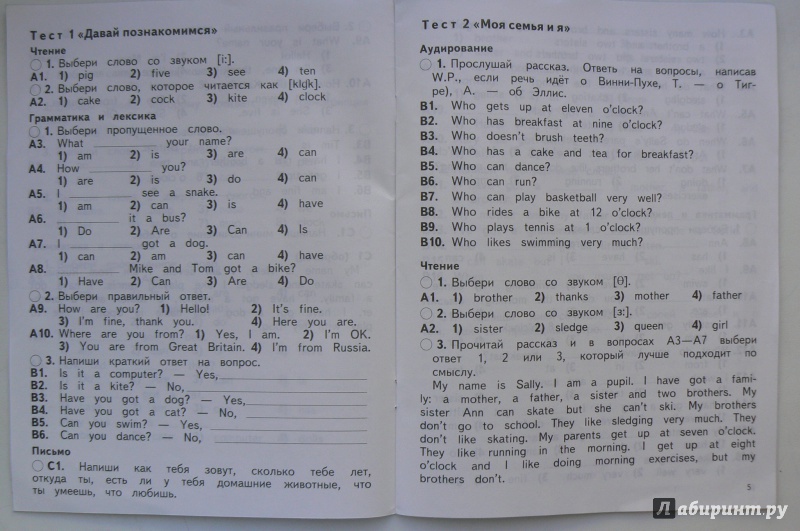 Тест 1 «Давай познакомимся»
Чтение
1. Выбери слово со звуком [i:].
A1. 1) pig 2) five 3) see 4) ten
2. Выбери слово, которое читается как [klɒk].
A2. 1) cake 2) cock 3) kite 4) clock
Грамматика и лексика
1. Выбери пропущенное слово.
A3. What ________ your name?
1) am 2) is 3) are 4) can
A4. How ________ you?
1) are 2) is 3) do 4) can
A5. I ________ see a snake.
1) am 2) can 3) is 4) have
A6. ________ it a bus?
1) Do 2) Are 3) Can 4) Is
A7. I ________ got a dog.
1) can 2) am 3) can 4) have
A8. ________ Mike and Tom got a bike?
1) Have 2) Can 3) Are 4) Do
2. Выбери правильный ответ.
A9. How are you? 1) Hello! 2) It's fine.
3) I'm fine, thank you. 4) Here you are.
A10. Where are you from? 1) Yes, I am. 2) I'm OK.
3) You are from Great Britain. 4) I'm from Russia.
3. Напиши краткий ответ на вопрос.
B1. Is it a computer? — Yes, ________
B2. Is it a kite? — No, ________
B3. Have you got a dog? — Yes, ________
B4. Have you got a cat? — No, ________
B5. Can you swim? — Yes, ________
B6. Can you dance? — No, ________
Письмо
C1. Напиши как тебя зовут, сколько тебе лет,
откуда ты, есть ли у тебя домашние животные, что
ты умеешь, что любишь.
Тест 2 «Моя семья и я»
Аудирование
1. Прослушай рассказ. Ответь на вопросы, написав
W.P., если речь идёт о Винни-Пухе, T. — о Тиг-
ре), A. — об Эллис.
B1. Who gets up at eleven o'clock?
B2. Who has breakfast at nine o'clock?
B3. Who doesn't brush teeth?
B4. Who has a cake and tea for breakfast?
B5. Who can dance?
B6. Who can run?
B7. Who can play basketball very well?
B8. Who rides a bike at 12 o'clock?
B9. Who plays tennis at 1 o'clock?
B10. Who likes swimming very much?
Чтение
1. Выбери слово со звуком [θ].
A1. 1) brother 2) thanks 3) mother 4) father
2. Выбери слово со звуком [ɜ:].
A2. 1) sister 2) sledge 3) queen 4) girl
3. Прочитай рассказ и в вопросах A3—A7 выбери
ответ 1, 2 или 3, который лучше подходит по
смыслу.
My name is Sally. I am a pupil. I have got a fami-
ly: a mother, a father, a sister and two brothers. My
sister Ann can skate but she can't ski. My brothers
don't go to school. They like sledging very much. They
don't like skating. My parents get up at seven o'clock.
They like running in the morning. I get up at eight
o'clock and I like doing morning exercises, but my
brothers don't.
5
Лабиринт.ру